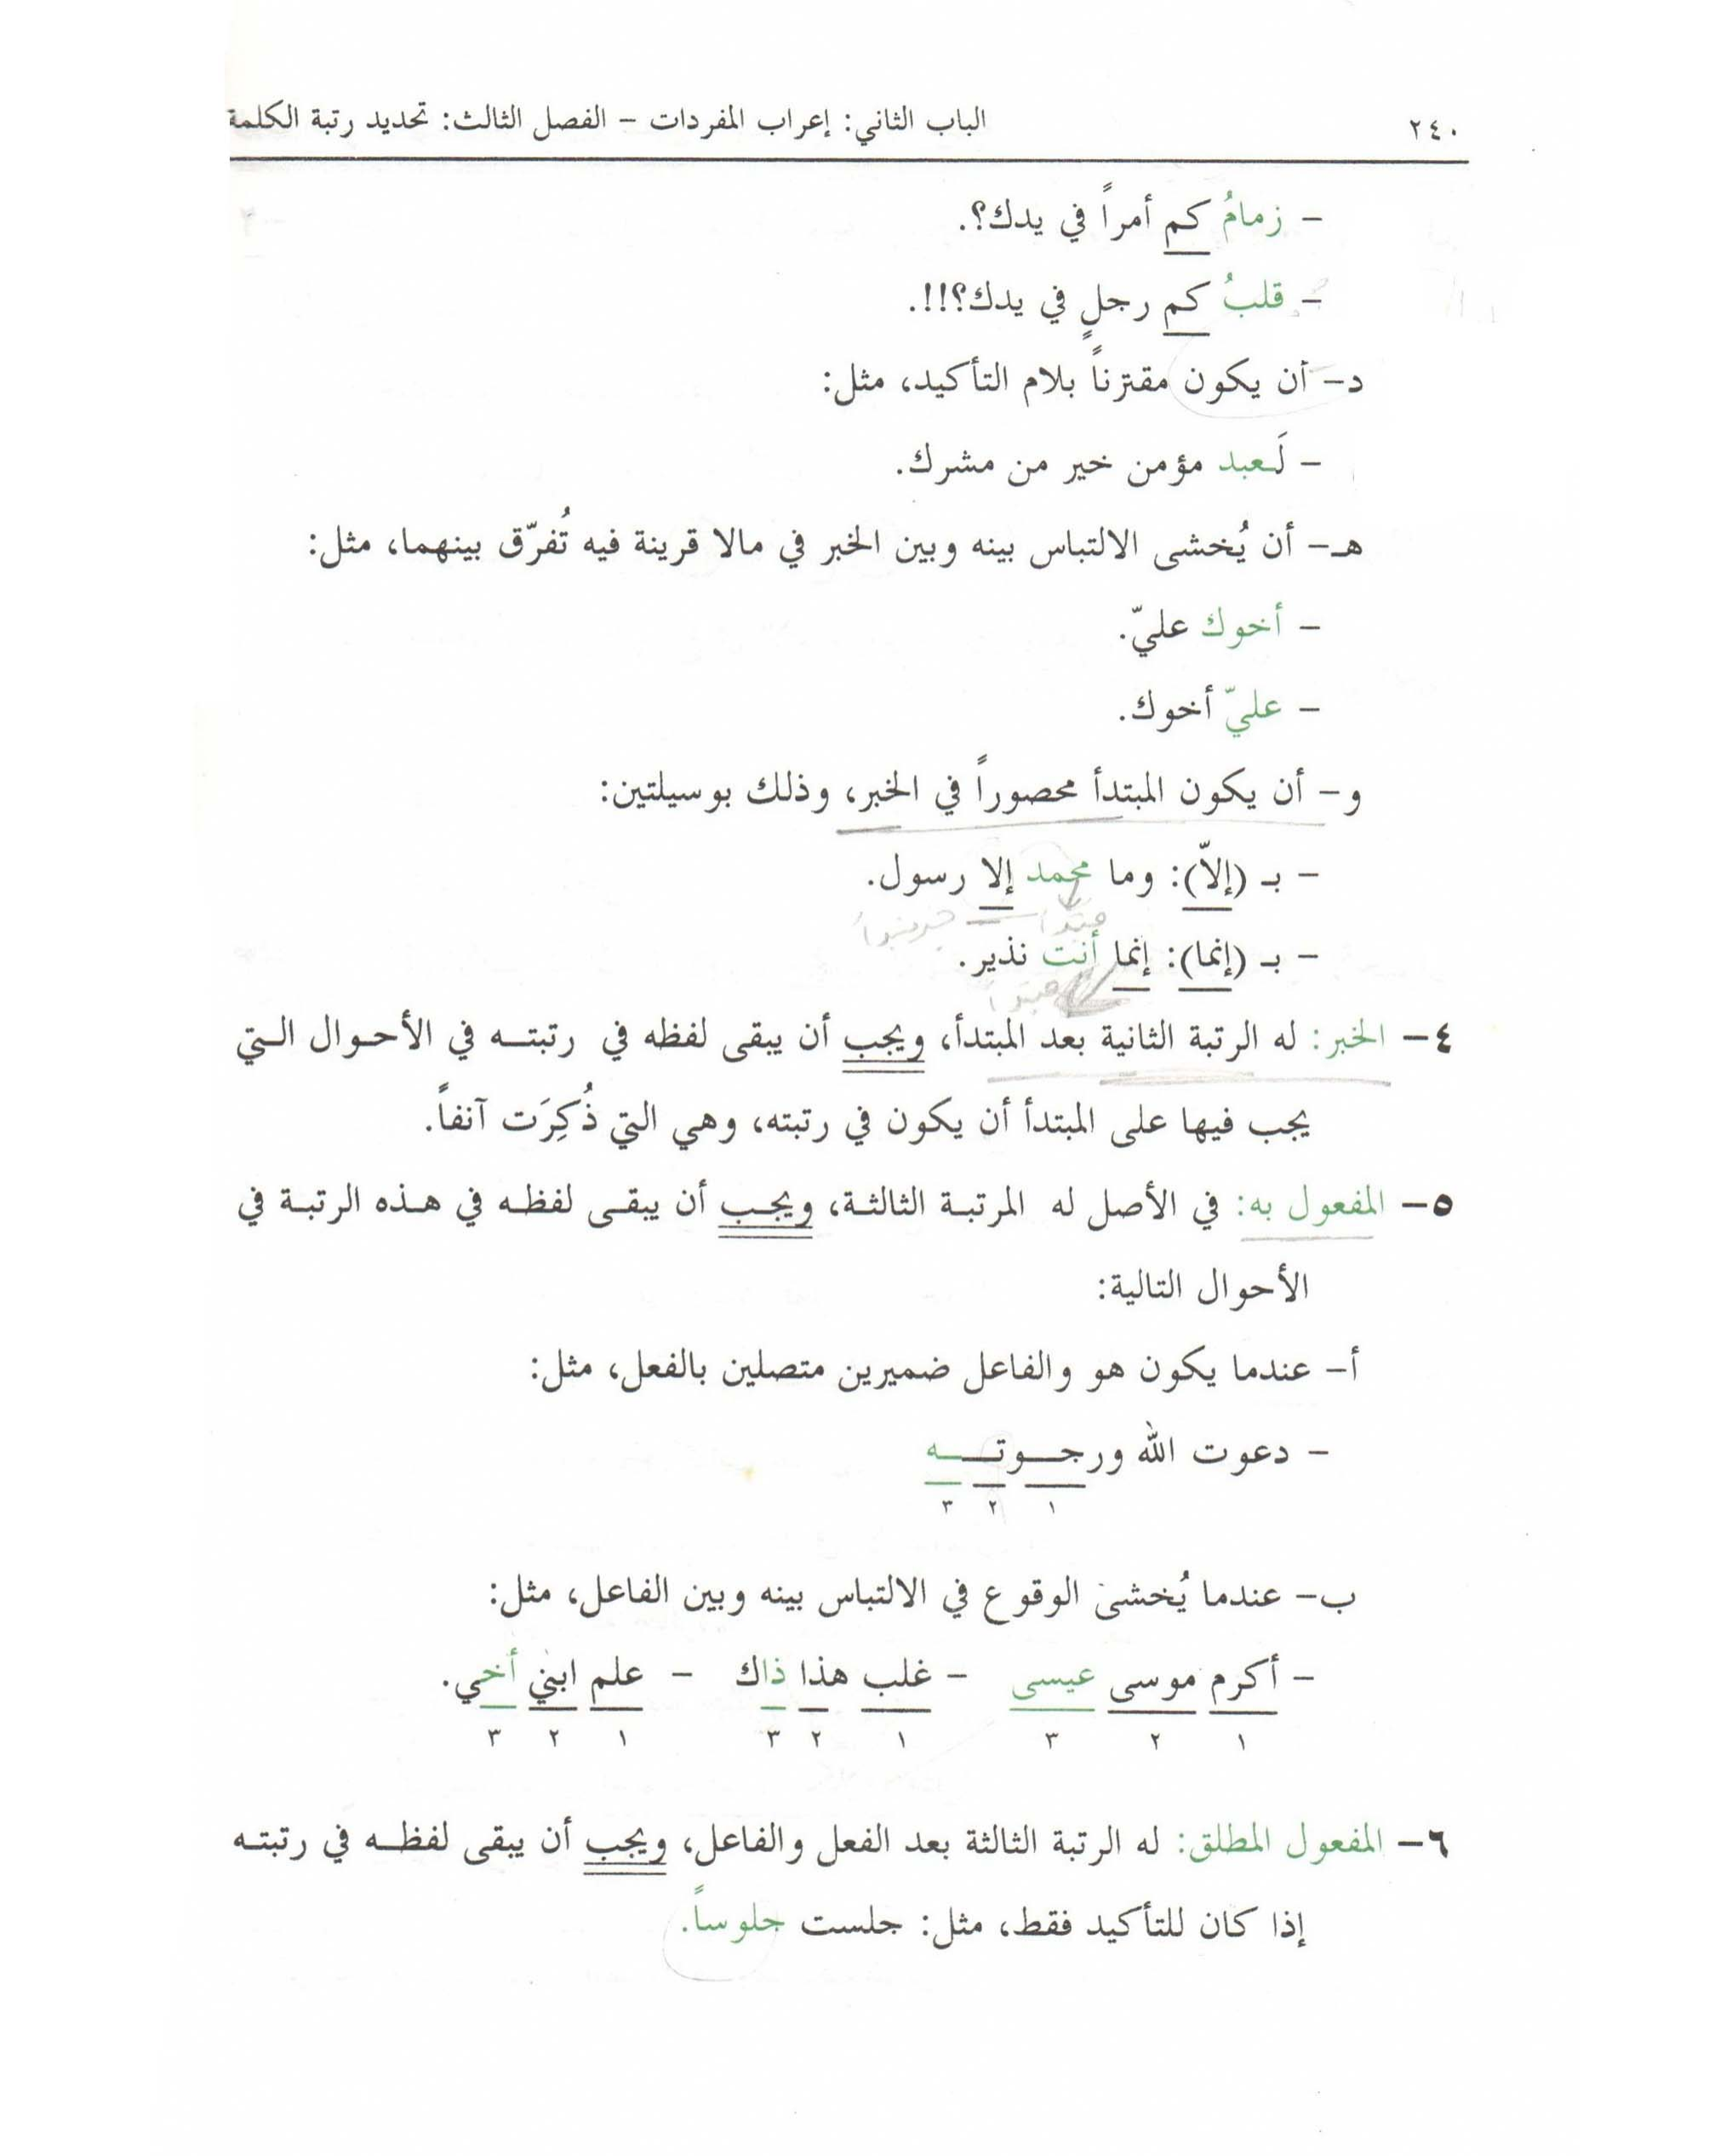 ٢٤٠ الباب الثاني: إعراب المفردات – الفصل الثالث: تحديد رتبة الكلمة
– زمامُ كم أمراً في يدك؟.
– قلبُ كم رجلٍ في يدك؟!!.
د– أن يكون مقترناً بلام التأكيد، مثل:
– لَـعبد مؤمن خير من مشرك.
هـ– أن يُخشى الالتباس بينه وبين الخبر في مالا قرينة فيه تُفرّق بينهما، مثل:
– أخوك عليّ.
– عليّ أخوك.
و– أن يكون المبتدأ محصوراً في الخبر، وذلك بوسيلتين:
– بـ (إلاّ): وما محمد إلا رسول.
مبتدأ
– بـ (إنما): إنما أنت نذير.
مبتدأ
٤– الخبر: له الرتبة الثانية بعد المبتدأ، ويجب أن يبقى لفظه في رتبتـــه في الأحـوال الـتي
يجب فيها على المبتدأ أن يكون في رتبته، وهي التي ذُكِرَت آنفاً.
٥– المفعول به: في الأصل له المرتبـة الثالثـة، ويجـب أن يبقـى لفظـه في هـذه الرتبـة في
الأحوال التالية:
أ– عندما يكون هو والفاعل ضميرين متصلين بالفعل، مثل:
– دعوت الله ورجـــوتـــــه
١ ٢ ٣
ب– عندما يُخشى الوقوع في الالتباس بينه وبين الفاعل، مثل:
– أكرم موسى عيسى – غلب هذا ذاك – علم ابني أخي.
١ ٢ ٣ ١ ٢ ٣ ١ ٢ ٣
٦– المفعول المطلق: له الرتبة الثالثة بعد الفعل والفاعل، ويجب أن يبقى لفظــه في رتبتـه
إذا كان للتأكيد فقط، مثل: جلست جلوساً.